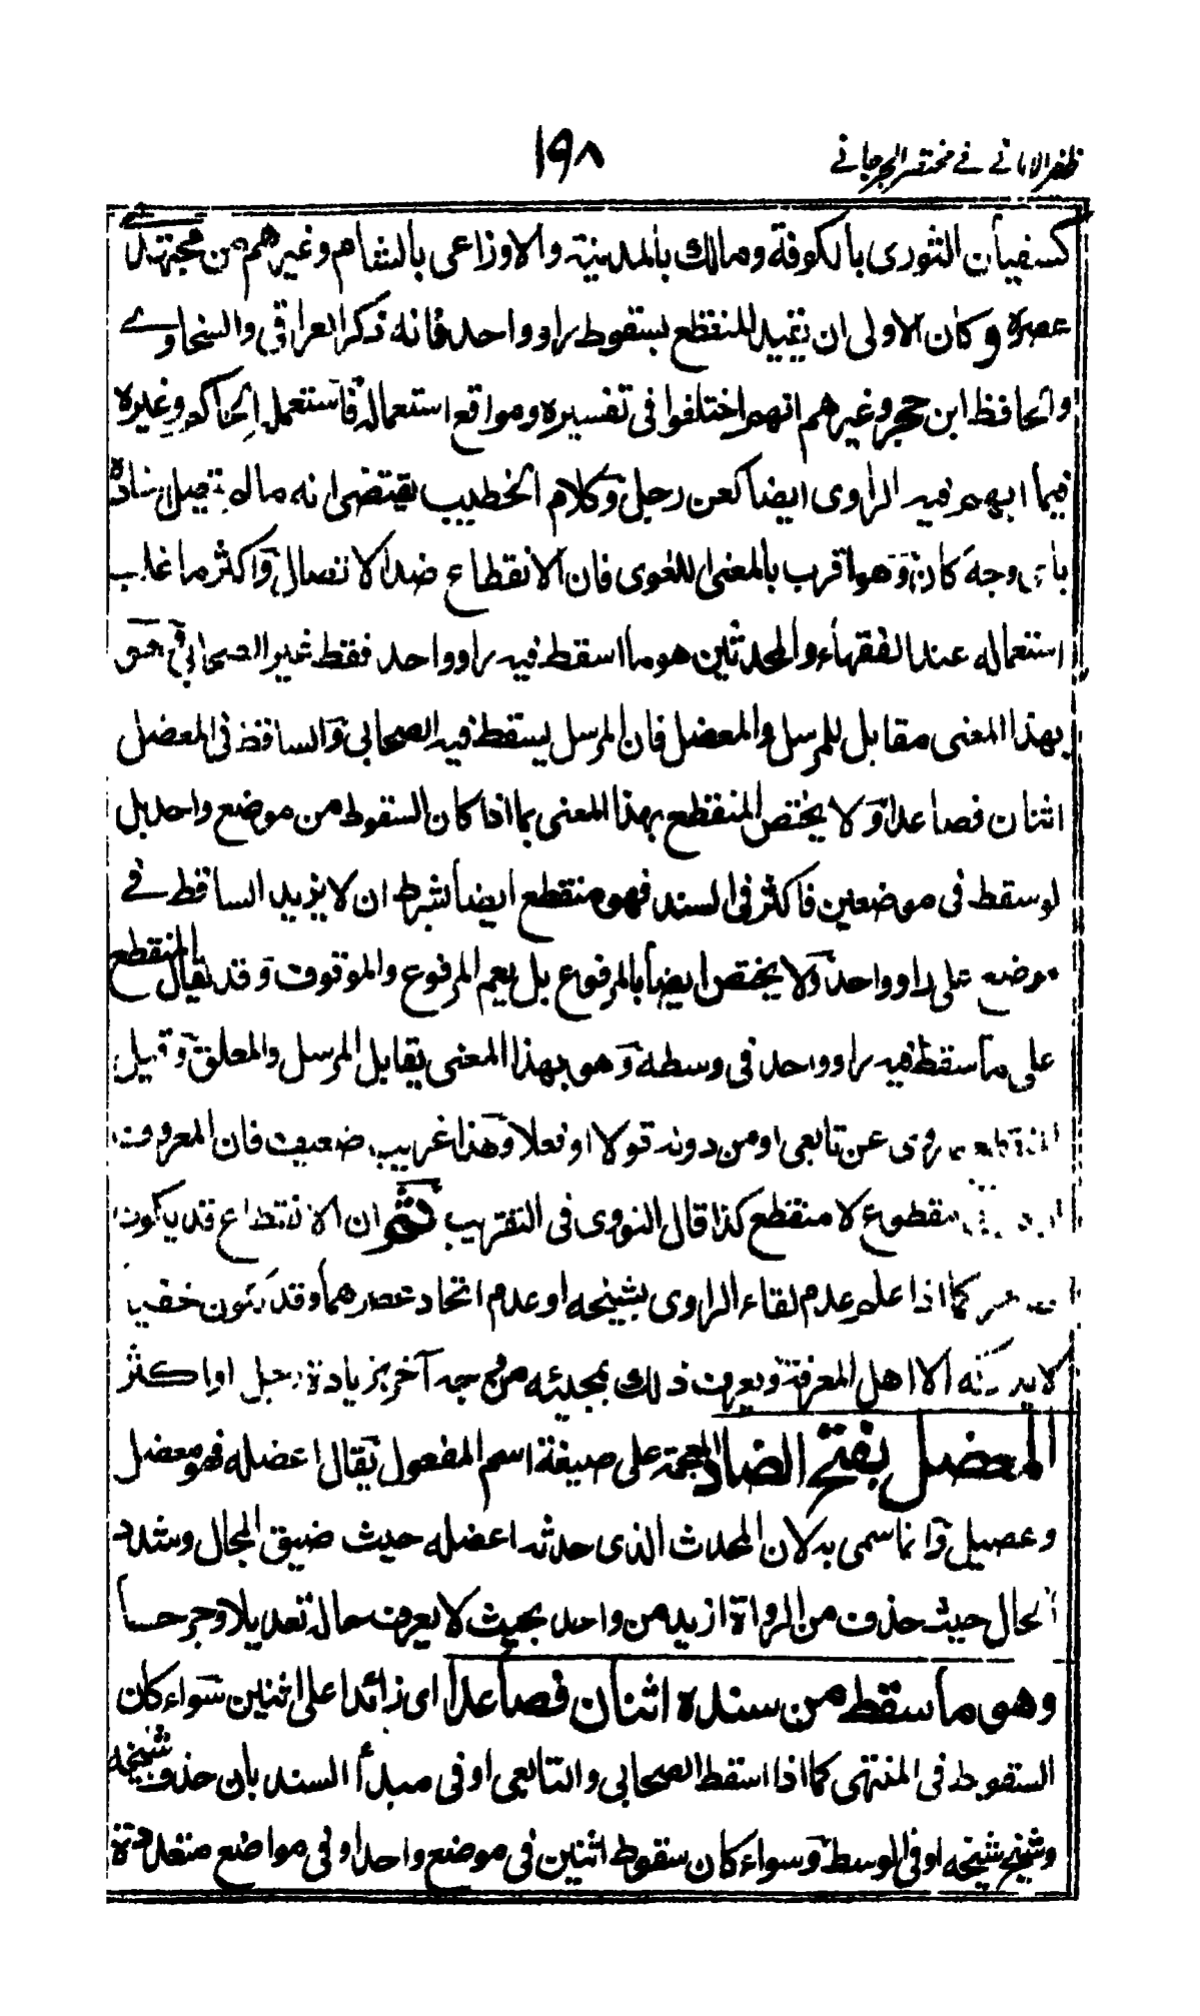 ظفر الامانے فے مختصر الجرجانے
١٩٨
كسفيان الثورى بالكوفة ومالك بالمدينة والاوزاعى بالشام وغيرهم من مجتهدى
عصره وكان الاولى ان يقيد المنقطع بسقوط راو واحد فانه ذكر العراقى والسخاوے
والحافظ ابن حجر وغيرهم انهم اختلفوا فى تفسيره ومواقع استعماله فاستعمل الحاكم وغيره
فيما ابهم فيه الراوى ايضا كعن رجل وكلام الخطيب يقتضى انه ما لم يتصل اسناده
باى وجه كان وهو اقرب بالمعنى اللغوى فان الانقطاع ضد الاتصال واكثر ما غلب
استعماله عند الفقهاء والمحدثين هو ما اسقط فيه راو واحد فقط غير الصحابى فهو
بهذا المعنى مقابل للمرسل والمعضل فان المرسل يسقط فيه الصحابى والساقط فى المعضل
اثنان فصاعدا ولا يختص المنقطع بهذا المعنى بما اذا كان السقوط من موضع واحد بل
لو سقط فى موضعين فاكثر فى السند فهو منقطع ايضا بشرط ان لا يزيد الساقط فے
موضع على راو واحد ولا يختص ايضا بالمرفوع بل يعم المرفوع والموقوف وقد يقال المنقطع
على ما سقط فيه راو واحد فى وسطه وهو بهذا المعنى يقابل المرسل والمعلق وقيل
المنقطع ما روى عن تابعى او من دونه قولا او فعلا وهذا غريب ضعيف فان المعروف
مقطوع لا منقطع كذا قال النووى فى التقريب ثم ان الانقطاع قد يكون
كما اذا علم عدم لقاء الراوى بشيخه او عدم اتحاد عصرهما وقد يكون خفيا
لا يدركه الا اهل المعرفة ويعرف ذلك بمجيئه من وجه آخر بزيادة رجل او اكثر
المعضل بفتح الضاد المعجمة على صيغة اسم المفعول يقال اعضله فهو معضل
وعضيل وانما سمى به لان المحدث الذى حدثه اعضله حيث ضيق المجال وشدد
الحال حيث حذف من الرواة ازيد من واحد بحيث لا يعرف حاله تعديلا وجرحا
وهو ما سقط من سنده اثنان فصاعدا اى زائدا على اثنين سواء كان
السقوط فى المنتهى كما اذا اسقط الصحابى والتابعى او فى مبدأ السند بان حذف شيخه
وشيخ شيخه او فى الوسط وسواء كان سقوط اثنين فى موضع واحد او فى مواضع متعددة